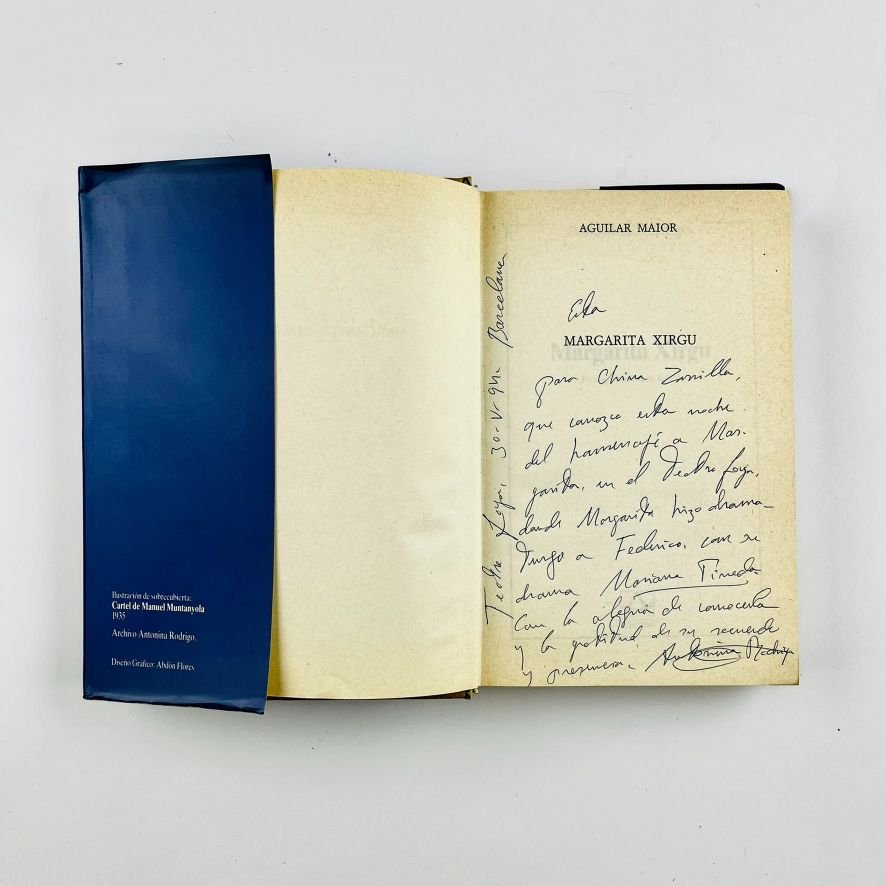 Ilustración de sobrecubierta:
Cartel de Manuel Muntanyola
1935
Archivo Antonina Rodrigo.
Diseño Gráfico: Abdón Flores
AGUILAR MAIOR
Esta
MARGARITA XIRGU
para China Zorrilla,
que conozco esta noche
del homenaje a Mar-
garita, en el Teatre Goya,
donde Margarita hizo drama-
turgo a Federico, con su
drama Mariana Pineda
Con la alegría de conocerla
y la gratitud de su recuerdo
y presencia.
Antonina Rodrigo
Teatre Goya, 30-V-94. Barcelona